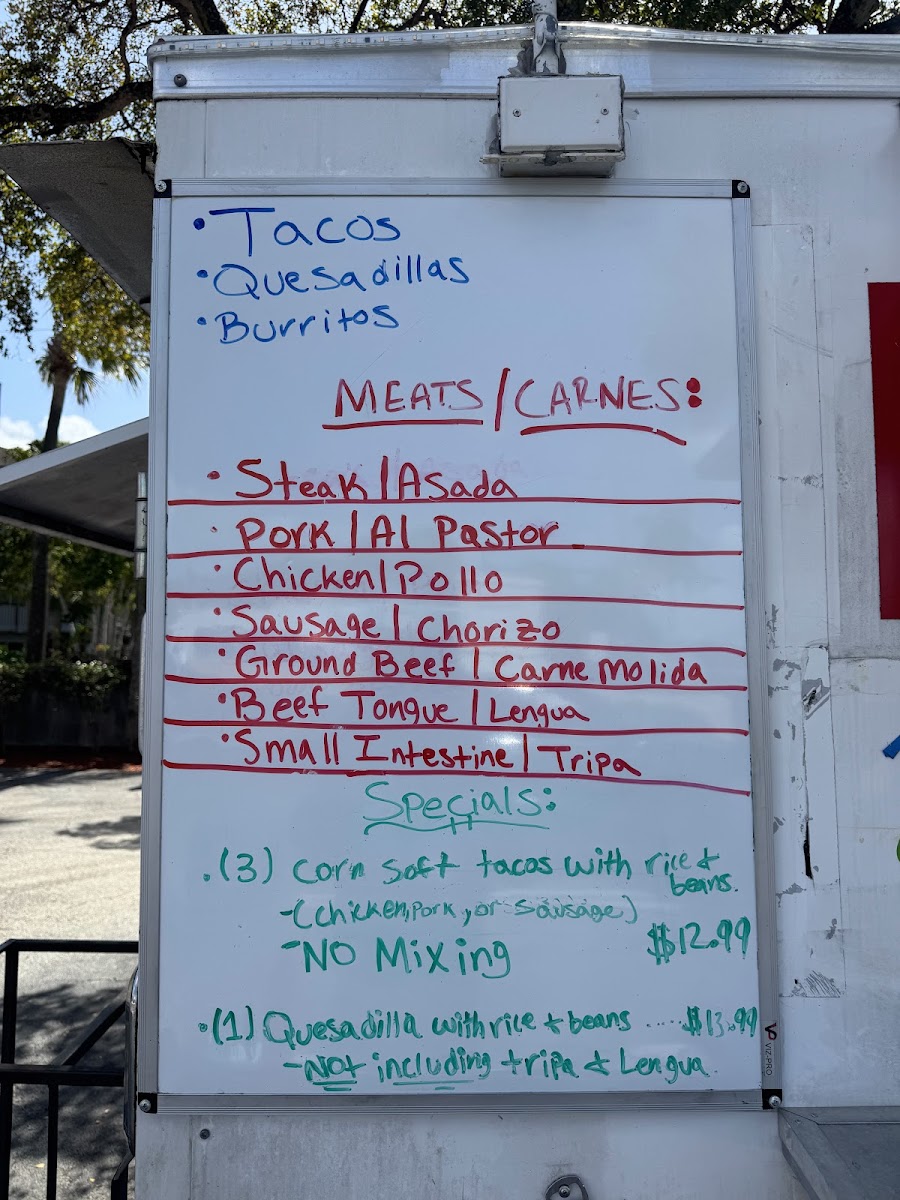 • Tacos
• Quesadillas
• Burritos
MEATS/CARNES:
• Steak | Asada
• Pork | Al Pastor
• Chicken | Pollo
• Sausage | Chorizo
• Ground Beef | Carne Molida
• Beef Tongue | Lengua
• Small Intestine | Tripa
Specials:
• (3) corn soft tacos with rice &
beans.
- (chicken, pork, or sausage)
- NO Mixing $12.99
• (1) Quesadilla with rice & beans ..... $13.99
- NOT including tripa & Lengua.
VIZ-PRO